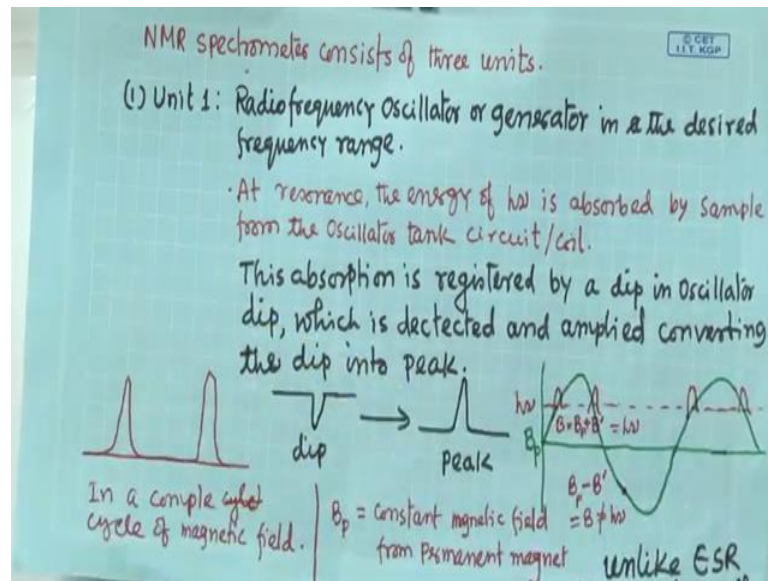 NMR spechometer consists of three units.
© CET
I.I.T. KGP
(1) Unit 1: Radiofrequency Oscillator or generator in the desired
frequency range.
·At resonance, the energy of hω is absorbed by sample
from the oscillator tank circuit/coil.
This absorption is registered by a dip in Oscillator
dip, which is dectected and amplied converting
the dip into peak.
dip
peak
hω
Bp
B=Bp+B' = hω
Bp-B'
=B≠hω
In a comple
cycle of magnetic field.
Bp = Constant mgnetic field
from permanent magnet
unlike ESR